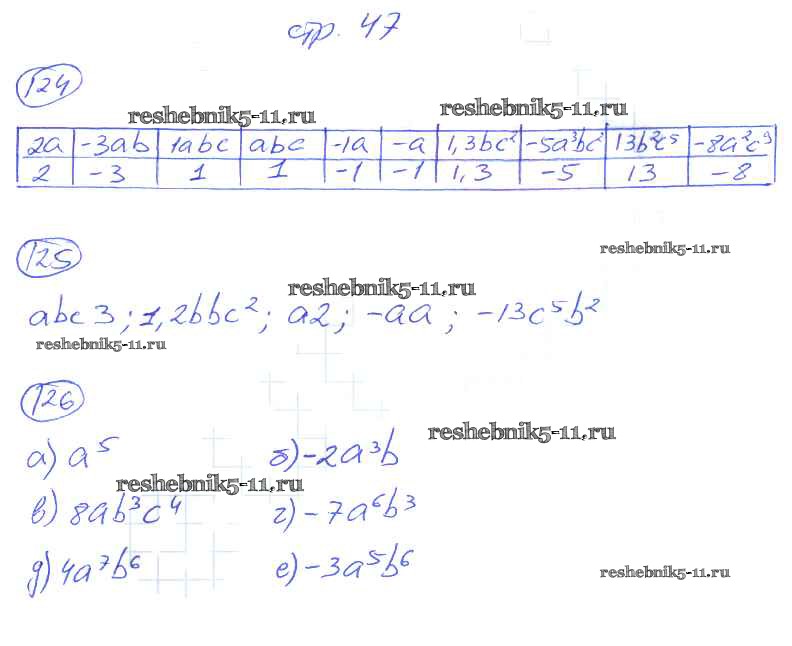 стр. 47
124
reshebnik5-11.ru reshebnik5-11.ru
2a -3ab 1abc abc -1a -a 1,3bc² -5a³bc² 13b²c⁵ -8a²c⁹
2 -3 1 1 -1 -1 1,3 -5 13 -8
reshebnik5-11.ru
125
reshebnik5-11.ru
abc3; 1,2bbc²; a2; -aa; -13c⁵b²
reshebnik5-11.ru
126
reshebnik5-11.ru
а) a⁵ б) -2a³b
reshebnik5-11.ru
в) 8ab³c⁴ г) -7a⁶b³
д) 4a⁷b⁶ е) -3a⁵b⁶
reshebnik5-11.ru